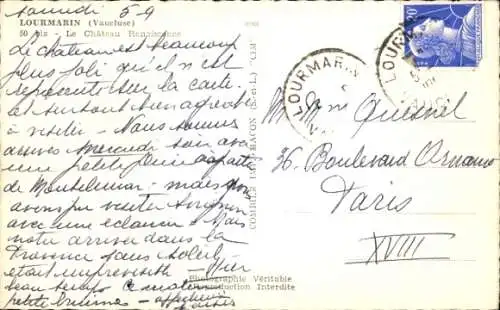 samedi 5-9
LOURMARIN (Vaucluse)
50 bis - Le Château Renaissance
Le château est beaucoup
plus joli qu'il n'est
représenté sur la carte
et surtout bien agréable
à visiter - Nous sommes
arrivés mercredi soir avec
une petite pluie à partir
de Montelimar - mais
avons pu visiter Avignon
avec une éclaircie - Mais
notre arrivée dans la
Provence sans soleil
était imprévisible - Hier
beau temps
petite brumes - affectueux
baisers
COMBIER IMP. MACON (S.-et-L.) CIM
Photographie Véritable
Reproduction Interdite
LOURMARIN
LOURMARIN
Mme Quesnel
36 Boulevard Ornano
Paris
XVIII